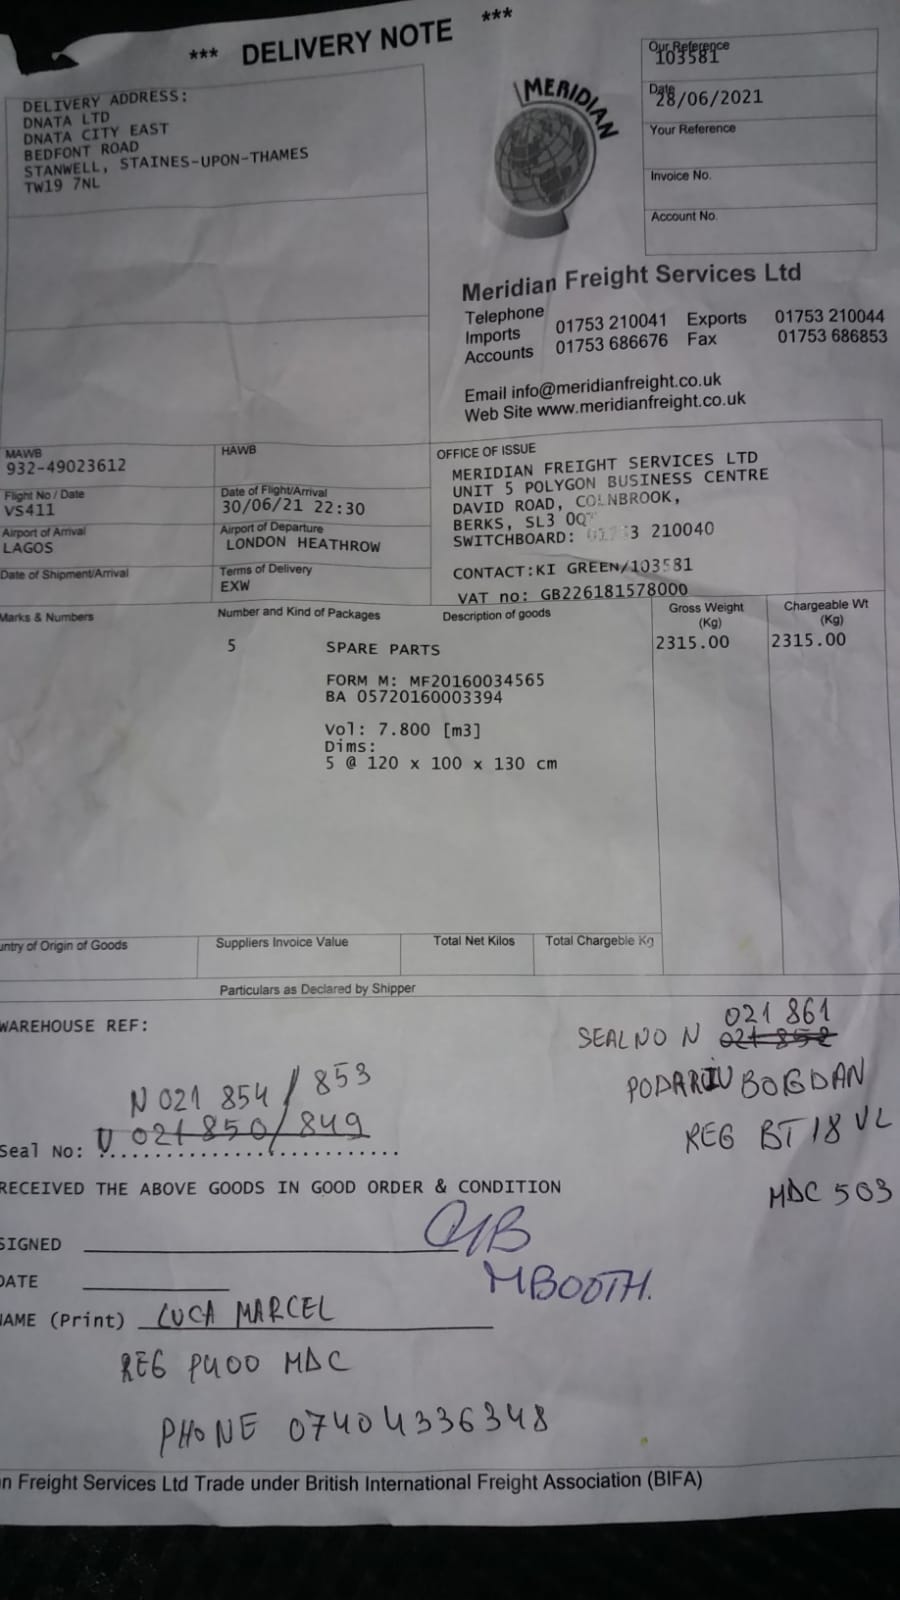 *** DELIVERY NOTE ***
DELIVERY ADDRESS:
DNATA LTD
DNATA CITY EAST
BEDFONT ROAD
STANWELL, STAINES-UPON-THAMES
TW19 7NL
MERIDIAN
Our Reference
103581
Date
28/06/2021
Your Reference
Invoice No.
Account No.
Meridian Freight Services Ltd
Telephone
Imports 01753 210041 Exports 01753 210044
Accounts 01753 686676 Fax 01753 686853
Email info@meridianfreight.co.uk
Web Site www.meridianfreight.co.uk
MAWB
932-49023612
HAWB
Flight No / Date
VS411
Date of Flight/Arrival
30/06/21 22:30
Airport of Arrival
LAGOS
Airport of Departure
LONDON HEATHROW
Date of Shipment/Arrival
Terms of Delivery
EXW
OFFICE OF ISSUE
MERIDIAN FREIGHT SERVICES LTD
UNIT 5 POLYGON BUSINESS CENTRE
DAVID ROAD, COLNBROOK,
BERKS, SL3
SWITCHBOARD: 210040
CONTACT:KI GREEN/103581
VAT no: GB226181578000
Marks & Numbers
Number and Kind of Packages
Description of goods
Gross Weight
(Kg)
Chargeable Wt
(Kg)
5 SPARE PARTS 2315.00 2315.00
FORM M: MF20160034565
BA 05720160003394
Vol: 7.800 [m3]
Dims:
5 @ 120 x 100 x 130 cm
untry of Origin of Goods
Suppliers Invoice Value
Total Net Kilos
Total Chargeble Kg
Particulars as Declared by Shipper
WAREHOUSE REF:
021 861
SEAL NO N 021 852
PODARIU BOGDAN
REG BT 18 VL
MDC 503
N 021 854 / 853
Seal No: U 021 850 / 849
RECEIVED THE ABOVE GOODS IN GOOD ORDER & CONDITION
SIGNED
M BOOTH.
DATE
NAME (Print) LUCA MARCEL
REG P400 MDC
PHONE 07404336348
n Freight Services Ltd Trade under British International Freight Association (BIFA)